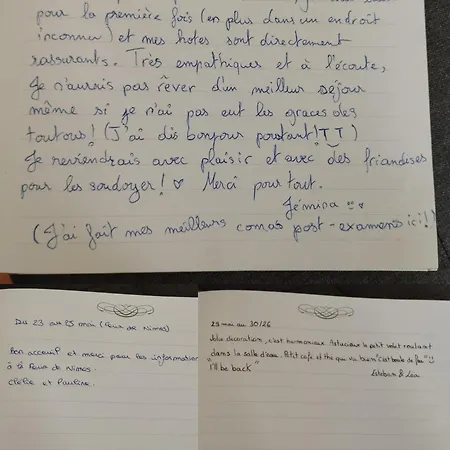 pour la première fois (en plus dans un endroit
inconnu) et mes hotes sont directement
rassurants. Très empathiques et à l'écoute,
Je n'aurais pas rêver d'un meilleur séjour
même si je n'ai pas eut les graces des
toutous! (J'ai dis bonjour pourtant! TT)
Je reviendrais avec plaisir et avec des friandises
pour les soudoyer! ♡ Merci pour tout.
Jémina
(J'ai fait mes meilleurs comas post-examens ici!)
Du 23 au 25 mai (Feria de Nimes)
Bon accueil et merci pour les information
à la Feria de Nimes.
Clélie et Pauline.
29 mai au 30/26
Jolie décoration, c'est harmonieux. Astucieux le petit volet roulant
dans la salle d'eau. Petit café et thé qui va bien
I'll be back"
Esteban & Léa